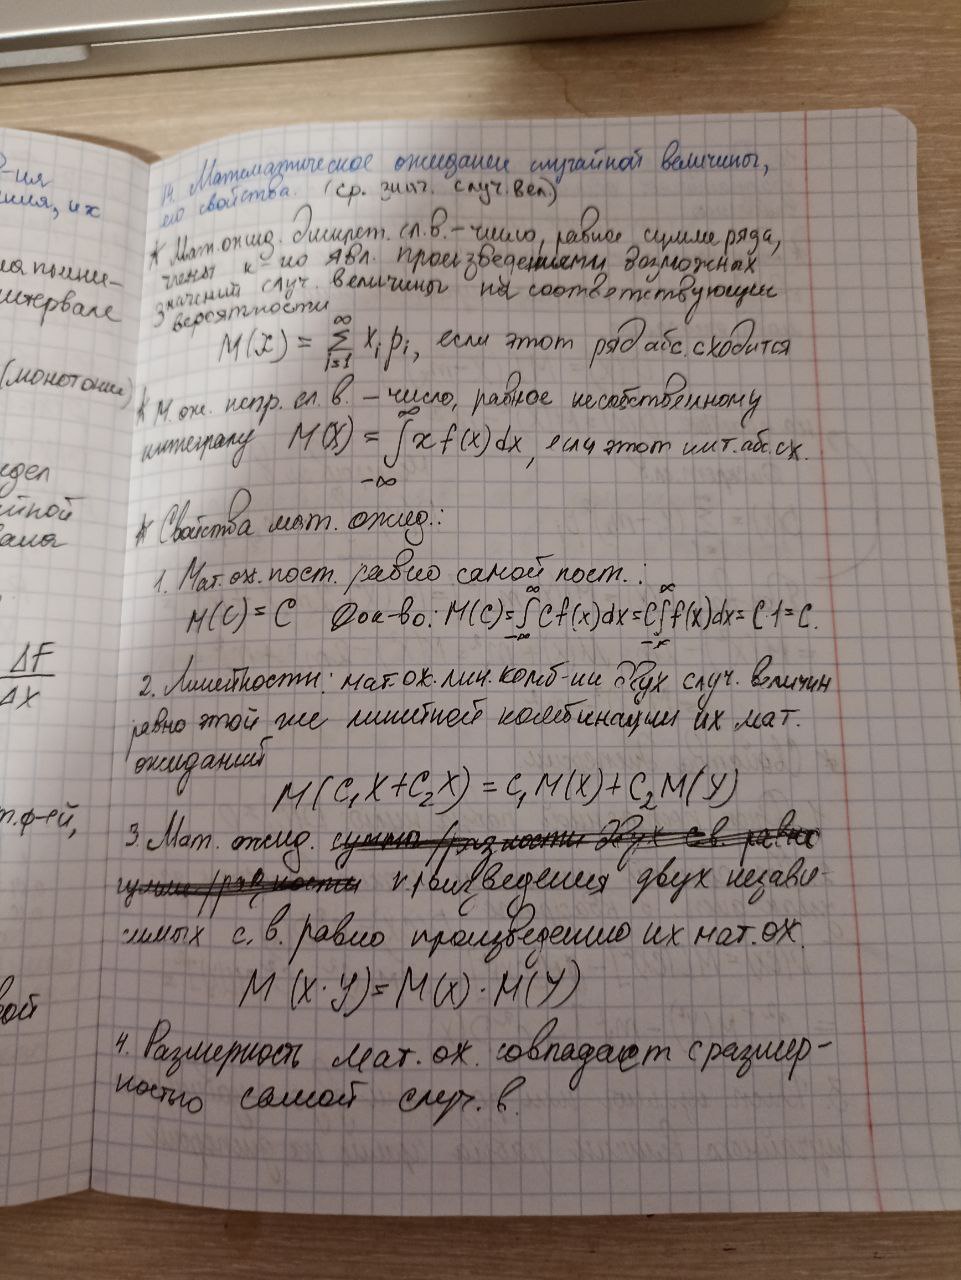 ия
ния, их
интервале
(монотонне)
ΔF
ΔX
т.ф-ей,
14. Математическое ожидание случайной величины,
его свойства. (ср. знач. случ. вел)
* Мат. ожид. дискрет. сл. в. – число, равное сумме ряда,
члены к-го явл. произведениями возможных
значений случ. величины на соответствующие
вероятности
M(X) = ∞ ∑ i=1 xᵢ pᵢ, если этот ряд абс. сходится
* М. ож. непр. сл. в. – число, равное несобственному
интегралу M(X) = ∞ ∫ -∞ x f(x) dx, если этот инт. абс. сх.
* Свойства мат. ожид.:
1. Мат. ож. пост. равно самой пост.:
M(C) = C Док-во: M(C) = ∞ ∫ -∞ C f(x) dx = C ∞ ∫ -∞ f(x) dx = C·1 = C.
2. Линейности: мат. ож. лин. комб-ии двух случ. величин
равно этой же линейной комбинации их мат.
ожиданий
M(C₁X + C₂X) = C₁M(X) + C₂M(Y)
3. Мат. ожид. суммы/разности двух с.в. равно
сумме/разности произведения двух незави-
симых с. в. равно произведению их мат. ож.
M(X·Y) = M(X)·M(Y)
4. Размерность мат. ож. совпадает с размер-
ностью самой случ. в.